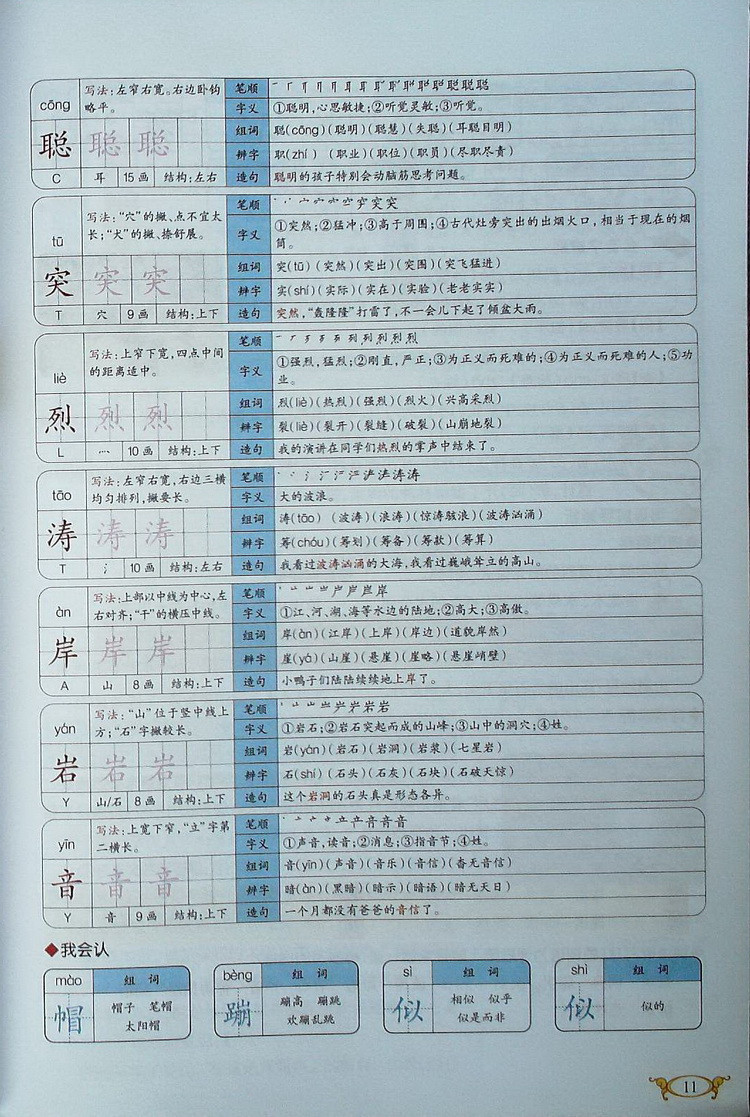 cōng
写法:左窄右宽。右边卧钩略平。
聪 聪 聪
C 耳 15画 结构:左右
笔顺
字义 ①聪明,心思敏捷;②听觉灵敏;③听觉。
组词 聪(cōng)(聪明)(聪慧)(失聪)(耳聪目明)
辨字 职(zhí)(职业)(职位)(职员)(尽职尽责)
造句 聪明的孩子特别会动脑筋思考问题。
tū
写法:“穴”的撇、点不宜太长;“犬”的撇、捺舒展。
突 突 突
T 穴 9画 结构:上下
笔顺
字义 ①突然;②猛冲;③高于周围;④古代灶旁突出的出烟火口,相当于现在的烟筒。
组词 突(tū)(突然)(突出)(突围)(突飞猛进)
辨字 实(shí)(实际)(实在)(实验)(老老实实)
造句 突然,“轰隆隆”打雷了,不一会儿下起了倾盆大雨。
liè
写法:上窄下宽,四点中间的距离适中。
烈 烈 烈
L 灬 10画 结构:上下
笔顺
字义 ①强烈,猛烈;②刚直,严正;③为正义而死难的;④为正义而死难的人;⑤功业。
组词 烈(liè)(热烈)(强烈)(烈火)(兴高采烈)
辨字 裂(liè)(裂开)(裂缝)(破裂)(山崩地裂)
造句 我的演讲在同学们热烈的掌声中结束了。
tāo
写法:左窄右宽,右边三横均匀排列,撇要长。
涛 涛 涛
T 氵 10画 结构:左右
笔顺
字义 大的波浪。
组词 涛(tāo)(波涛)(浪涛)(惊涛骇浪)(波涛汹涌)
辨字 筹(chóu)(筹划)(筹备)(筹款)(筹算)
造句 我看过波涛汹涌的大海,我看过巍峨耸立的高山。
àn
写法:上部以中线为中心,左右对齐;“干”的横压中线。
岸 岸 岸
A 山 8画 结构:上下
笔顺
字义 ①江、河、湖、海等水边的陆地;②高大;③高傲。
组词 岸(àn)(江岸)(上岸)(岸边)(道貌岸然)
辨字 崖(yá)(山崖)(悬崖)(崖略)(悬崖峭壁)
造句 小鸭子们陆陆续续地上岸了。
yán
写法:“山”位于竖中线上方;“石”字撇较长。
岩 岩 岩
Y 山/石 8画 结构:上下
笔顺
字义 ①岩石;②岩石突起而成的山峰;③山中的洞穴;④姓。
组词 岩(yán)(岩石)(岩洞)(岩浆)(七星岩)
辨字 石(shí)(石头)(石灰)(石块)(石破天惊)
造句 这个岩洞的石头真是形态各异。
yīn
写法:上宽下窄,“立”字第二横长。
音 音 音
Y 音 9画 结构:上下
笔顺
字义 ①声音,读音;②消息;③指音节;④姓。
组词 音(yīn)(声音)(音乐)(音信)(杳无音信)
辨字 暗(àn)(黑暗)(暗示)(暗语)(暗无天日)
造句 一个月都没有爸爸的音信了。
◆我会认
mào 组词
帽 帽子 笔帽
太阳帽
bèng 组词
蹦 蹦高 蹦跳
欢蹦乱跳
sì 组词
似 相似 似乎
似是而非
shì 组词
似 似的
11